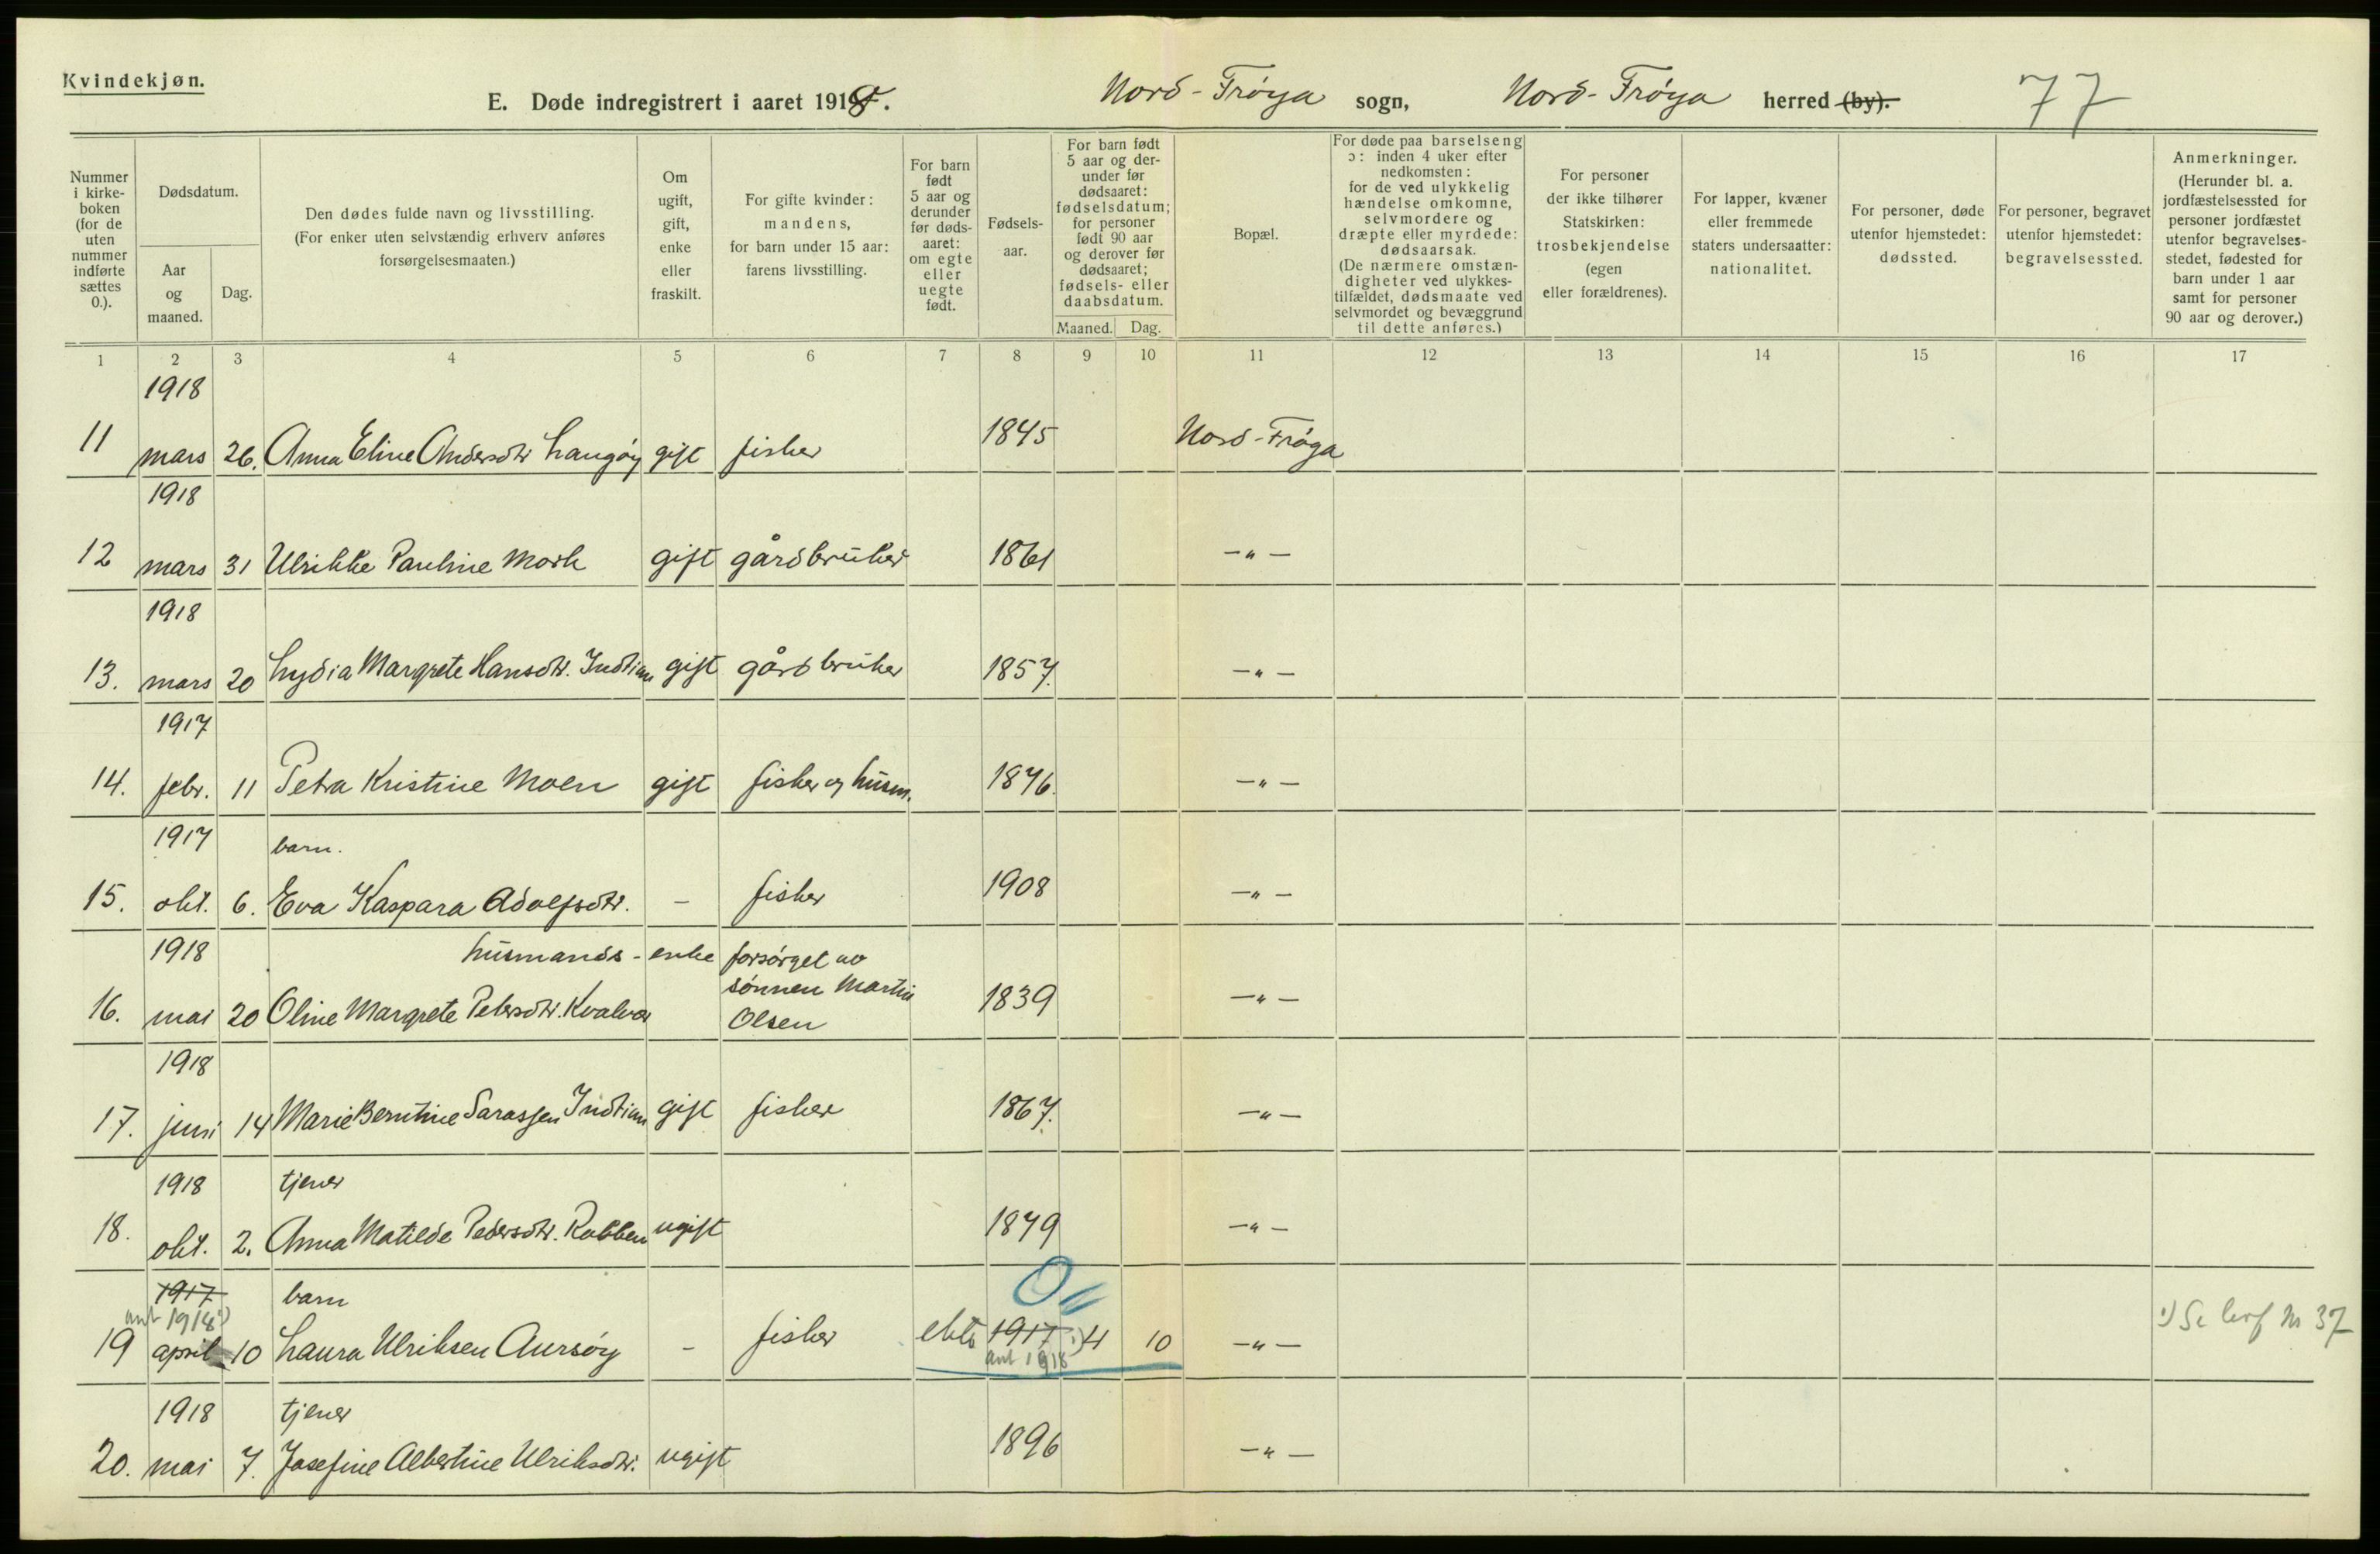 Kvindekjøn.
E. Døde indregistrert i aaret 1918.
Nord-Frøya sogn,
Nord-Frøya herred (by).
77
Nummer i kirke-boken (for de uten nummer indførte sættes 0.).
Dødsdatum.
Aar og maaned.
Dag.
Den dødes fulde navn og livsstilling.
(For enker uten selvstændig erhverv anføres forsørgelsesmaaten.)
Om ugift, gift, enke eller fraskilt.
For gifte kvinder: mandens, for barn under 15 aar: farens livsstilling.
For barn født 5 aar og derunder før døds-aaret: om egte eller uegte født.
Fødsels-aar.
For barn født 5 aar og der-under før dødsaaret: fødselsdatum; for personer født 90 aar og derover før dødsaaret; fødsels- eller daabsdatum.
Maaned. Dag.
Bopæl.
For døde paa barselseng ɔ: inden 4 uker efter nedkomsten: for de ved ulykkelig hændelse omkomne, selvmordere og dræpte eller myrdede: dødsaarsak. (De nærmere omstæn-digheter ved ulykkes-tilfældet, dødsmaate ved selvmordet og bevæggrund til dette anføres.)
For personer der ikke tilhører Statskirken: trosbekjendelse (egen eller forældrenes).
For lapper, kvæner eller fremmede staters undersaatter: nationalitet.
For personer, døde utenfor hjemstedet: dødssted.
For personer, begravet utenfor hjemstedet: begravelsessted.
Anmerkninger. (Herunder bl. a. jordfæstelsessted for personer jordfæstet utenfor begravelses-stedet, fødested for barn under 1 aar samt for personer 90 aar og derover.)
1 2 3 4 5 6 7 8 9 10 11 12 13 14 15 16 17
1918
11 mars 26. Anna Eline Andersdtr Langøy gift fisker 1845 Nord-Frøya
1918
12 mars 31 Ulrikke Pauline Mork gift gårdbruker 1861 —"—
1918
13. mars 20 Lydia Margrete Hansdtr. Indtian gift gårdbruker 1857. —"—
1917
14. febr. 11 Petra Kristine Moen gift fisker og husm. 1876. —"—
1917 barn.
15. okt. 6. Eva Kaspara Adolfsdtr. - fisker 1908 —"—
1918 husmands - enke forsørget av
sønnen Martin
16. mai 20 Oline Margrete Petersdtr. Kvalvær Olsen 1839 —"—
1918
17. juni 14 Marie Berntine Sarassen Indtian gift fisker 1867. —"—
1918 tjener
18. okt. 2. Anna Matilde Pedersdtr. Rabben ugift 1879 —"—
1917 barn
ant 1918 1)
19 april 10 Laura Ulriksen Aursøy - fisker ekte 1917 1) 4 10 —"— 1) Se levf Nr 37
ant 1918
1918 tjener
20. mai 7. Josefine Albertine Ulriksdtr. ugift 1896 —"—